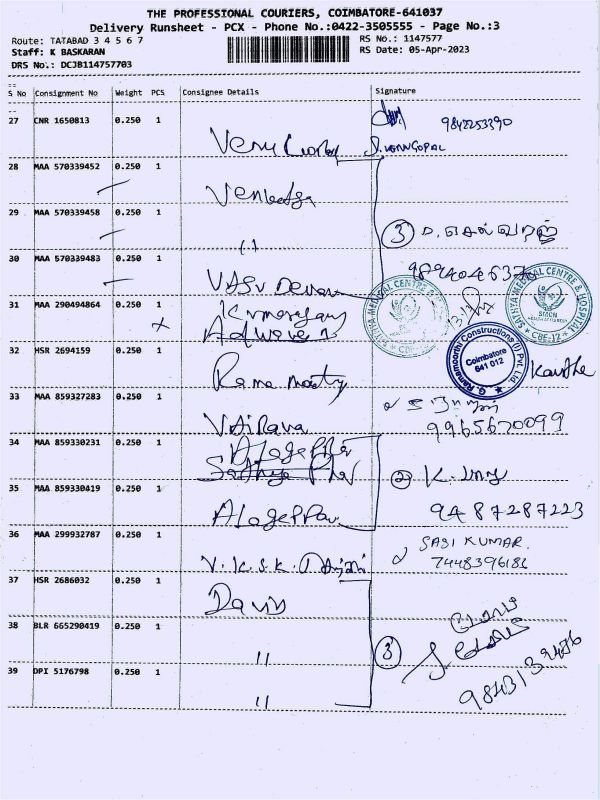 THE PROFESSIONAL COURIERS, COIMBATORE-641037
Delivery Runsheet - PCX - Phone No.:0422-3505555 - Page No.:3
Route: TATABAD 3 4 5 6 7
RS No.: 1147577
Staff: K BASKARAN
RS Date: 05-Apr-2023
DRS No.: DCJB114757703
S No Consignment No Weight PCS Consignee Details Signature
27 CNR 1650813 0.250 1
9842253390
VENUGOPAL
28 MAA 570339452 0.250 1
29 MAA 570339458 0.250 1
3 D. செல்வராஜ்
30 MAA 570339483 0.250 1
VASU Devan
31 MAA 290494864 0.250 1
SATHYA MEDICAL CENTRE & HOSPITAL
SMCH
CBE-12
32 HSR 2694159 0.250 1
Rama moorty
G. Ramamoorthi Constructions (I) Pvt. Ltd.
Coimbatore
641 012
33 MAA 859327283 0.250 1
Vairava
9965670099
34 MAA 859330231 0.250 1
Alagappa
2 K.
35 MAA 859330419 0.250 1
Alagappa
9487287223
36 MAA 299932787 0.250 1
V.K.S.K.
SASI KUMAR.
7448396186
37 HSR 2686032 0.250 1
Davis
38 BLR 665290419 0.250 1
"
3
39 DPI 5176798 0.250 1
"